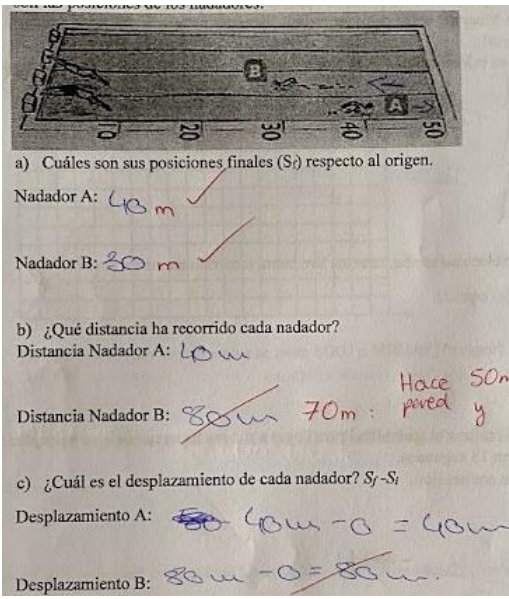 son las posiciones de los nadadores.
B
A
10
20
30
40
50
a) Cuáles son sus posiciones finales (Sf) respecto al origen.
Nadador A: 40 m
Nadador B: 30 m
b) ¿Qué distancia ha recorrido cada nadador?
Distancia Nadador A: 40m
Hace 50m
Distancia Nadador B: 80m 70m : pared y
c) ¿Cuál es el desplazamiento de cada nadador? Sf -Si
Desplazamiento A: 40m - 0 = 40m
Desplazamiento B: 80m - 0 = 80m.